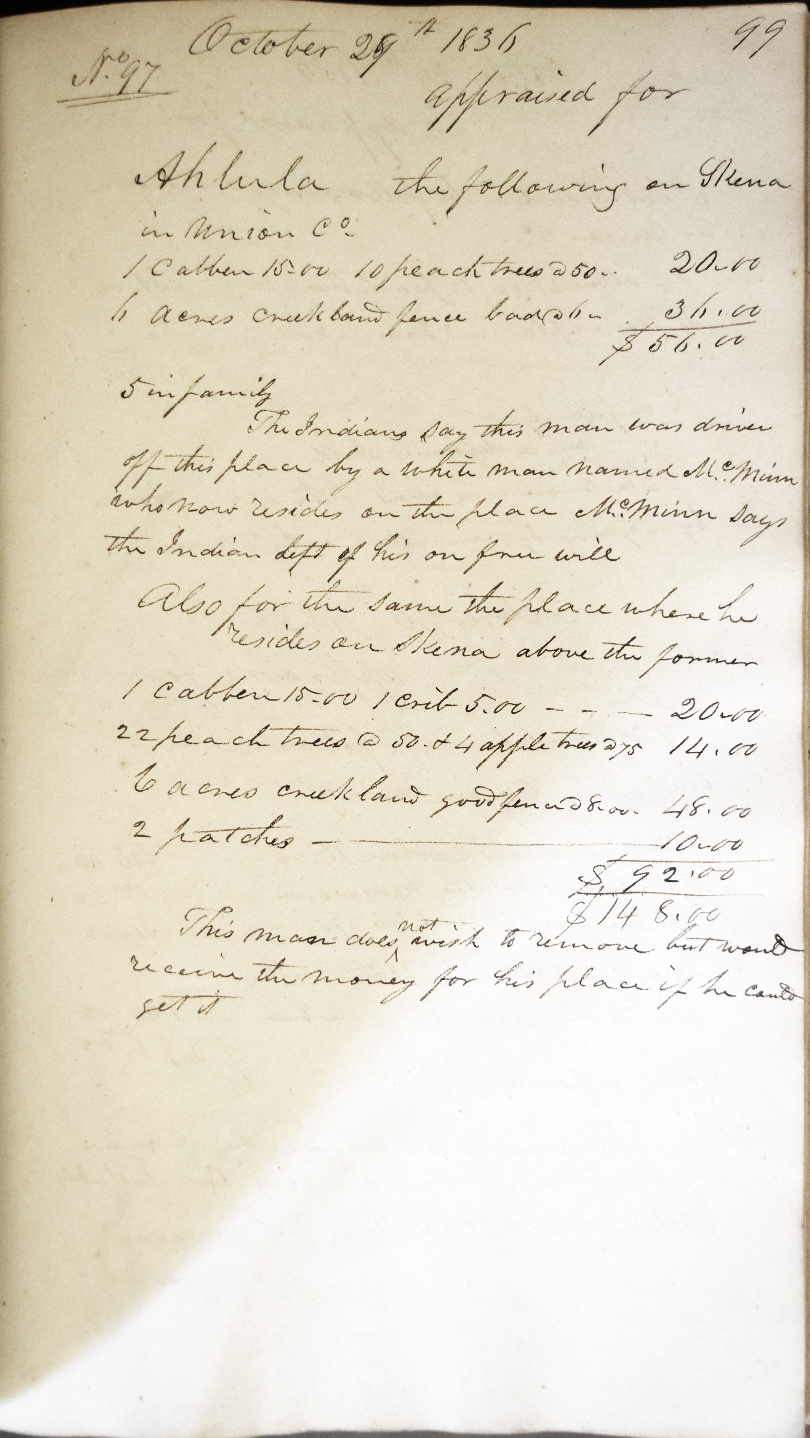 October 29th 1836 99
No. 97
appraised for
Ahlula the following on Skena
in Union Co.
1 Cabben 15.00 10 peach trees @ 50.. 20.00
6 acres creek land fence bad @ 6.. 36.00
$56.00
5 in family
The Indians say this man was driven
off this place by a white man named Mc.Minn
who now resides on the place Mc.Minn says
the Indian left of his on free will
Also for the same the place where he
resides on Skena above the former
1 cabben 15.00 1 crib 5.00 - - - 20.00
22 peach trees @ 50. & 4 apple trees @ 75 14.00
6 acres creek land good fence @ 8.00. 48.00
2 patches — 10.00
$ 92.00
$148.00
This man does not wish to remove but would
receive the money for his place if he could
get it